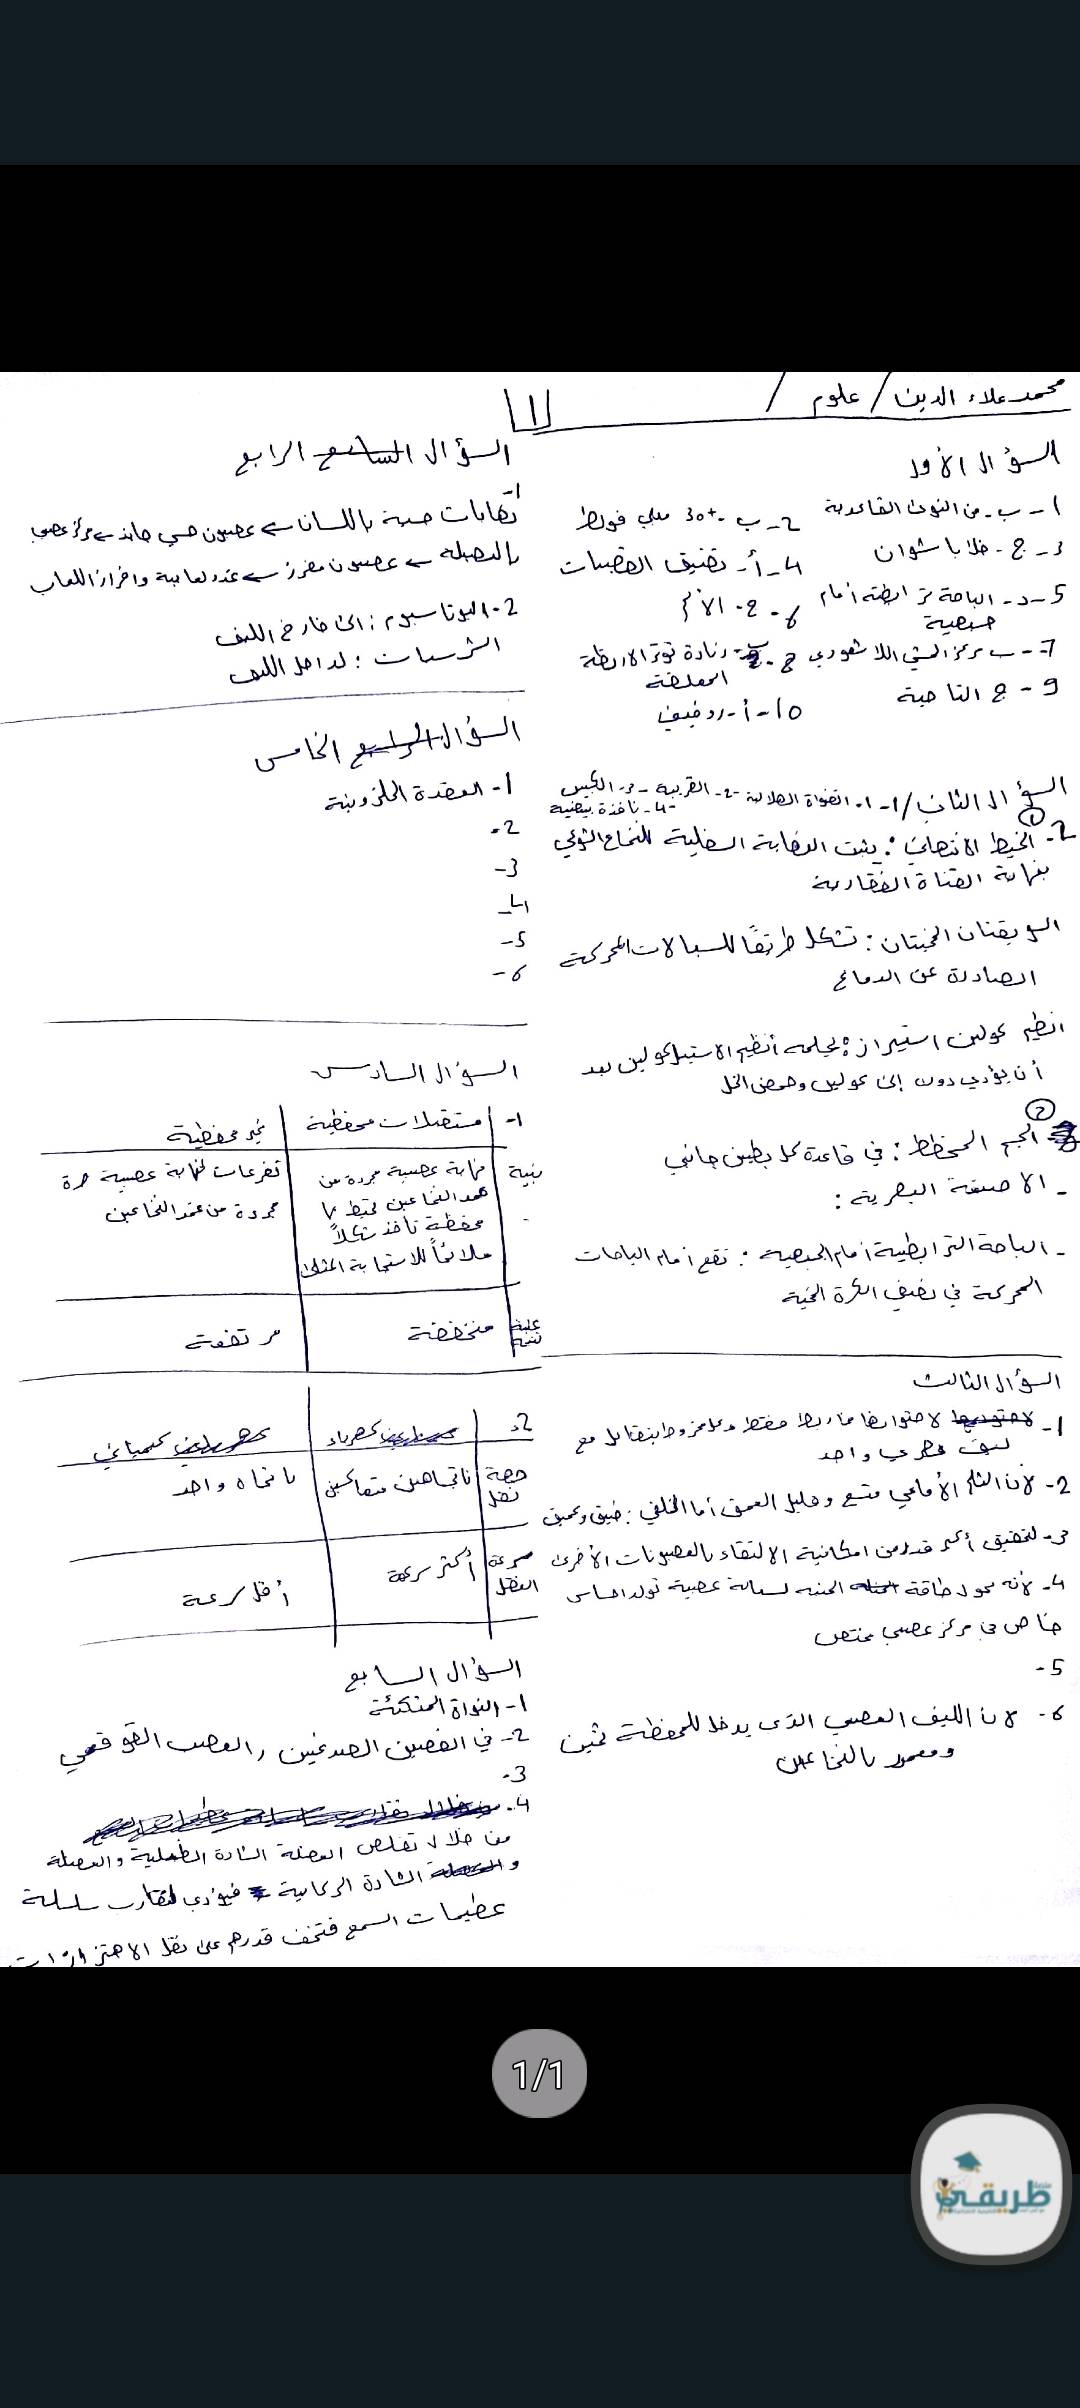 محمد علاء الدين / علوم /
1
السؤال الأول
1- ب- من النوى القاعدية
2- ب- +30 ميلي فولط
3- ج- خلايا شوان
4- أ- تضيق القصبات
5- د- الباحة الترابطية أمام جبهية
6- ج- الأم
7- ب مركز المشي اللاشعوري
8- زيادة توتر الأربطة المعلقة
9- ج التاحية
10- أ- رودفيف
السؤال الثاني / 1- 1- القناة الهلالية -2- القريبة -3- الكيس
4- نافذة بيضية
2- ① الخيط الانتهائي: يثبت النهاية السفلية للنخاع الشوكي
بنهاية القناة الفقارية
السويقتان المخيتان: تشكل طريقاً للسيالات المحركة
الصادرة عن الدماغ
انظيم كولين استيراز: يحلمه أنظيم الاستيل كولين بعد
أن يؤدي دوره إلى كولين وحمض الخل
② الجسم المخطط: في قاعدة كل بطين جانبي
- الاصبغة البصرية:
- الباحة الترابطية أمام الجبهية: تقع أمام الباحات
المحركة في نصفي الكرة المخية
السؤال الثالث
1- لاحتوائها مخاريط فقط وكل مخروط يتقابل مع
ليف بصري واحد
2- لأن الثلم الأمامي متسع وقليل العمق أما الخلفي: ضيق وعميق
3- لتحقيق أكبر قدر من امكانية الالتقاء بالعصبونات الأخرى
4- لأنه محول طاقة المنبه لسيالة عصبية تولد احساس
خاص في مركز عصبي مختص
5-
6- لأن الليف العصبي الذي يدخل للمحفظة ثخين
ومغمد بالنخاعين
السؤال الرابع
1-
نهايات حسية باللسان ← عصبون حسي جابذ ← مركز عصبي
بالبصلة ← عصبون مفرز ← غدد لعابية وافراز اللعاب
2- البوتاسيوم: الى خارج الليف
الشرسبات: لداخل الليف
السؤال الخامس
1- العقدة الحلزونية
2-
3-
4-
5-
6-
السؤال السادس
1- مستقبلات محفظية | غير محفظية
بنية | نهاية عصبية مجردة من
غمد النخاعين تحيط بها
محفظة تأخذ شكلاً
ملائماً للاستجابة المثلى | تفرعات لنهاية عصبية حرة
مجردة من غمد النخاعين
عتبة تنبيه | منخفضة | مرتفعة
2- كهرباء | كيميائي
جهة نقل | باتجاهين متعاكسين | باتجاه واحد
سرعة النقل | أكثر سرعة | أقل سرعة
السؤال السابع
1- النواة المتكئة
2- في الفصين الصدغيين، العصب القوقعي
3-
4-
من خلال تقلص العضلة الشادة الطبلية والعضلة
الشادة الركابية فيؤدي لتقارب سلسلة
عظيمات السمع فتخف قدرتهم على نقل الاهتزازات
1/1
منصة
طريقي